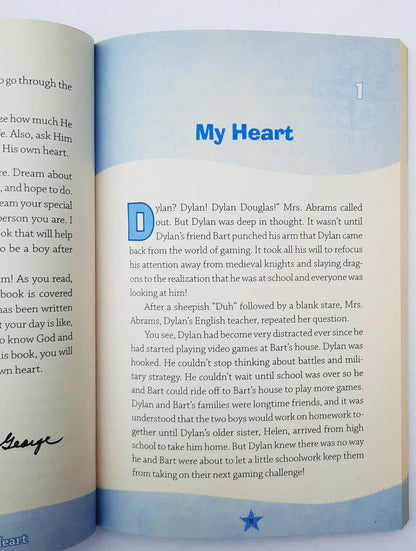 o go through the
ze how much He
fe. Also, ask Him
His own heart.
re. Dream about
, and hope to do.
eam your special
person you are. I
ok that will help
o be a boy after
m! As you read,
book is covered
has been written
t your day is like,
o know God and
is book, you will
wn heart.
George
Heart
1
My Heart
Dylan? Dylan! Dylan Douglas!” Mrs. Abrams called
out. But Dylan was deep in thought. It wasn’t until
Dylan’s friend Bart punched his arm that Dylan came
back from the world of gaming. It took all his will to refocus
his attention away from medieval knights and slaying drag-
ons to the realization that he was at school and everyone was
looking at him!
After a sheepish “Duh” followed by a blank stare, Mrs.
Abrams, Dylan’s English teacher, repeated her question.
You see, Dylan had become very distracted ever since he
had started playing video games at Bart’s house. Dylan was
hooked. He couldn’t stop thinking about battles and mili-
tary strategy. He couldn’t wait until school was over so he
and Bart could ride off to Bart’s house to play more games.
Dylan and Bart’s families were longtime friends, and it was
understood that the two boys would work on homework to-
gether until Dylan’s older sister, Helen, arrived from high
school to take him home. But Dylan knew there was no way
he and Bart were about to let a little schoolwork keep them
from taking on their next gaming challenge!
9